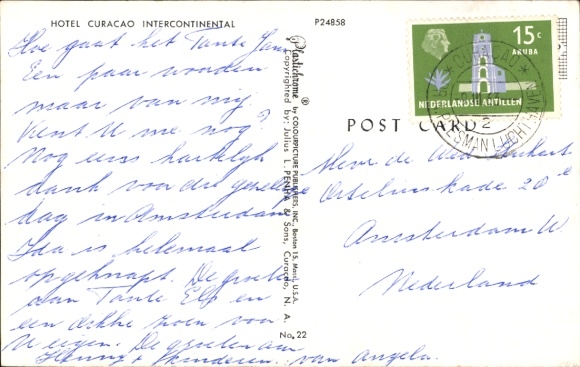 HOTEL CURACAO INTERCONTINENTAL
P24858
Hoe gaat het Tante Jans
Een paar woorden
maar van mij
Kent U me nog?
Nog eens hartelijk
dank voor die gezellige
dag in Amsterdam
Ida is helemaal
opgeknapt. De groeten
aan Tante Els en
een dikke zoen voor
U eigen. De groeten aan
Henny + kinderen. van Angela.
Plastichrome ® by COLOURPICTURE PUBLISHERS, INC. Boston 15, Mass., U.S.A.
Copyrighted by: Julius L. PENHA & Sons, Curacao, N. A.
No. 22
POST CARD
15c
ARUBA
NEDERLANDSE ANTILLEN
CURAÇAO
2
de
Orteliuskade 20
Amsterdam W.
Nederland